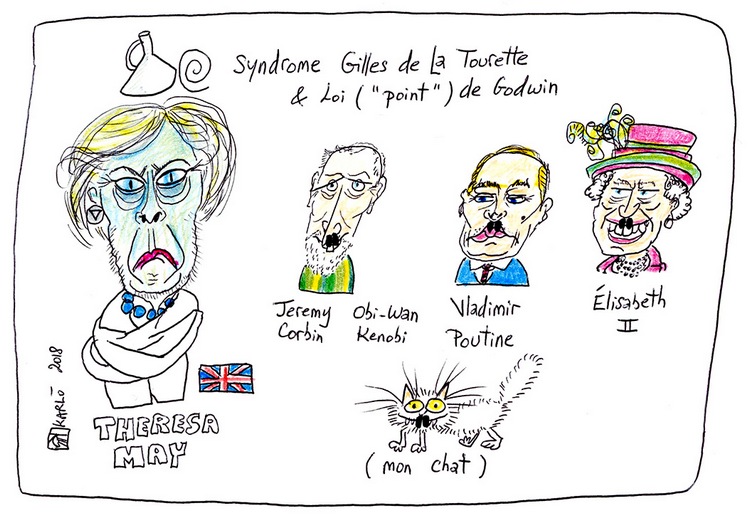 Syndrome Gilles de La Tourette
& Loi ("point") de Godwin
Jeremy
Corbin
Obi-Wan
Kenobi
Vladimir
Poutine
Élisabeth
II
KARLÒ 2018
THERESA
MAY
(mon chat)